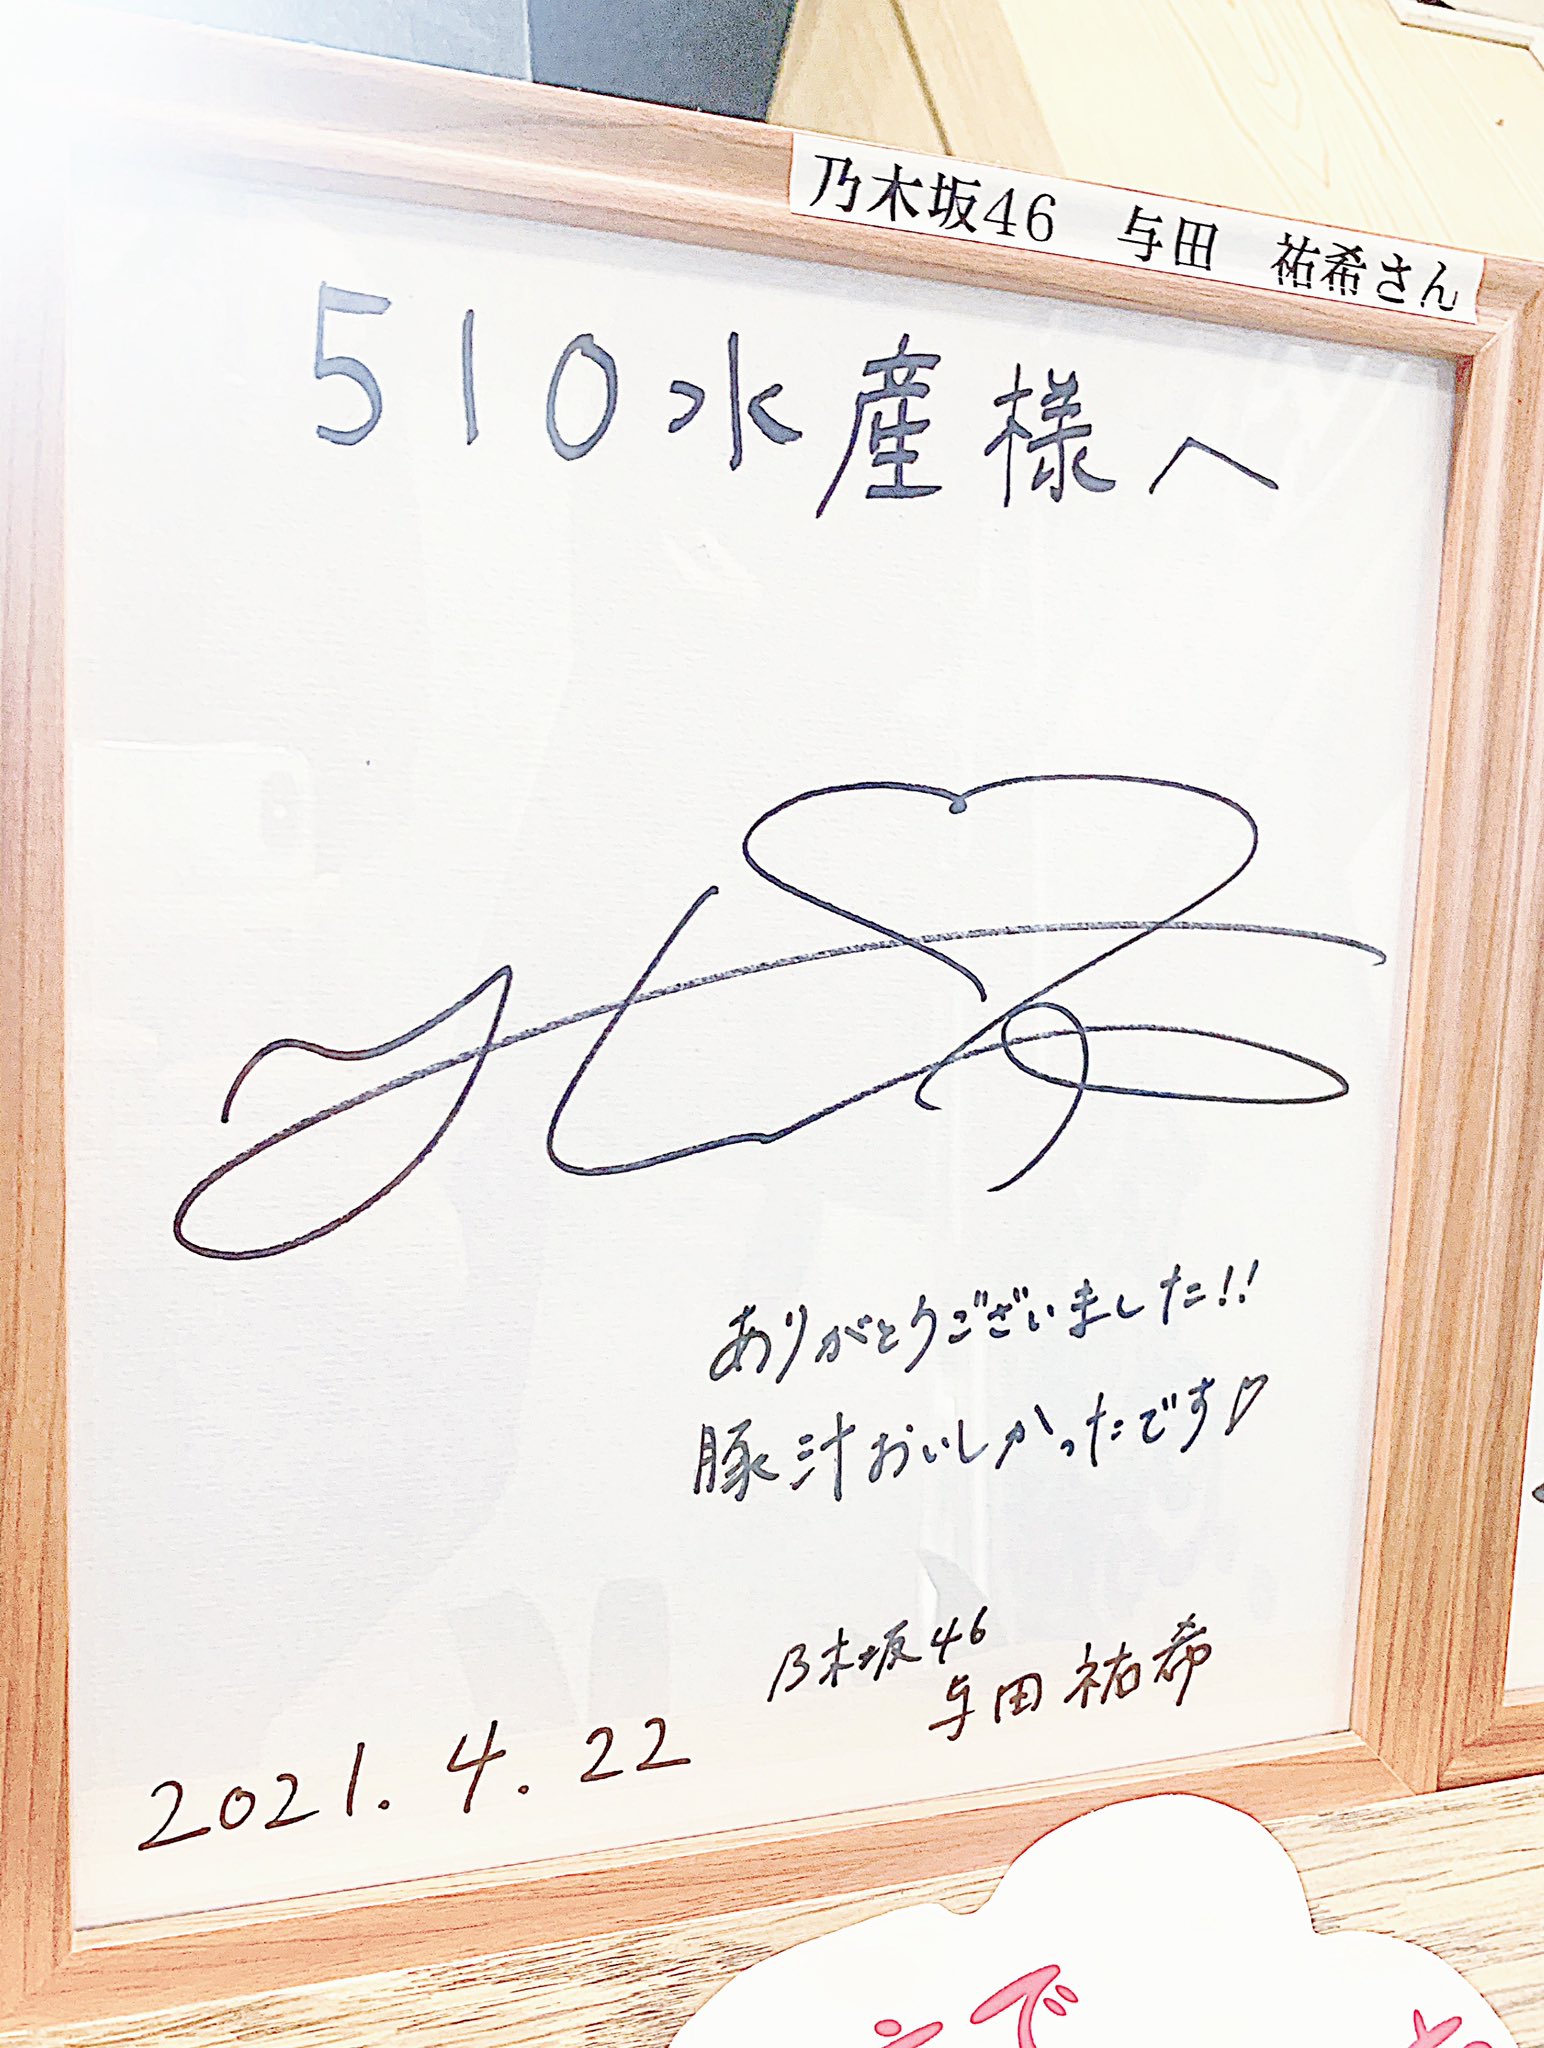 乃木坂46 与田 祐希さん
510水産様へ
ありがとうございました!!
豚汁おいしかったです♡
乃木坂46
与田祐希
2021.4.22
で